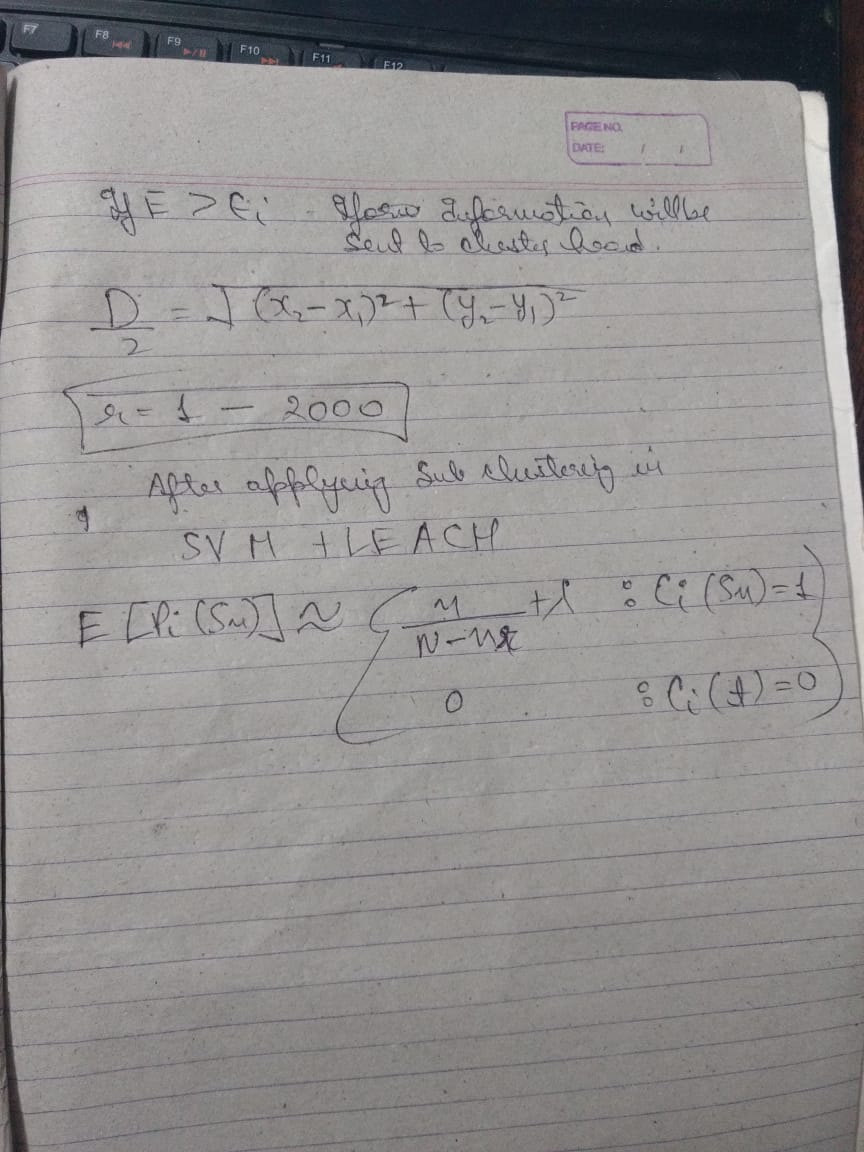 F7
F8
F9
F10
F11
F12
PAGE NO.
DATE: / /
If E > Ei Information will be
Sent to cluster head.
D/2 = √(x₂-x₁)²+(y₂-y₁)²
r = 1 - 2000
After applying Sub clustering in
SVM + LEACH
E [Pi (Sn)] ≈ { n/N-n +1 : Ci (Sn)=1
0 : Ci (t)=0 }